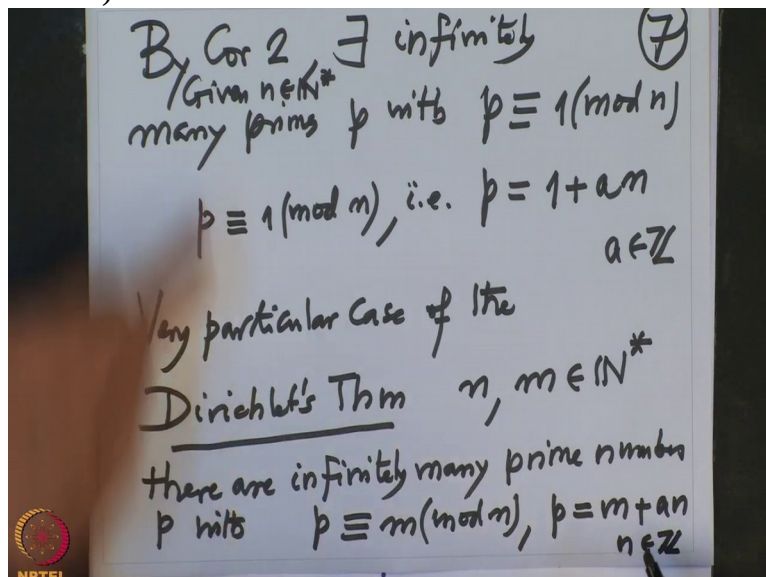 By Cor 2, ∃ infinitely ⑦
Given n∈ℕ*
many primes p with p ≡ 1 (mod n)
p ≡ 1 (mod n), i.e. p = 1 + an
a ∈ ℤ
Very particular case of the
Dirichlet's Thm n, m ∈ ℕ*
there are infinitely many prime numbers
p with p ≡ m (mod n), p = m + an
n ∈ ℤ
NPTEL